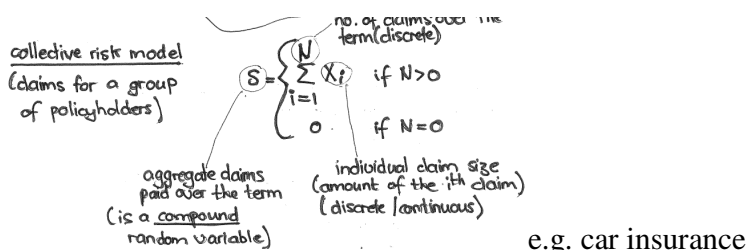 no. of claims over the
term (discrete)
collective risk model
(claims for a group
of policyholders)
S = { N Σ i=1 Xi if N>0
0 if N=0
aggregate claims
paid over the term
(is a compound
random variable)
individual claim size
(amount of the ith claim)
(discrete / continuous)
e.g. car insurance